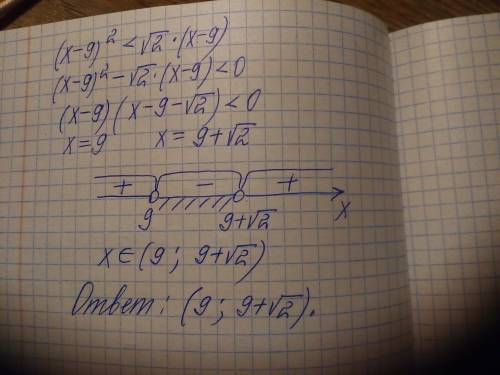 (x-9)² < √2 · (x-9)
(x-9)² - √2 · (x-9) < 0
(x-9) (x-9-√2) < 0
x = 9 x = 9+√2
+ - +
9 9+√2 x
x ∈ (9 ; 9+√2)
Ответ: (9 ; 9+√2).